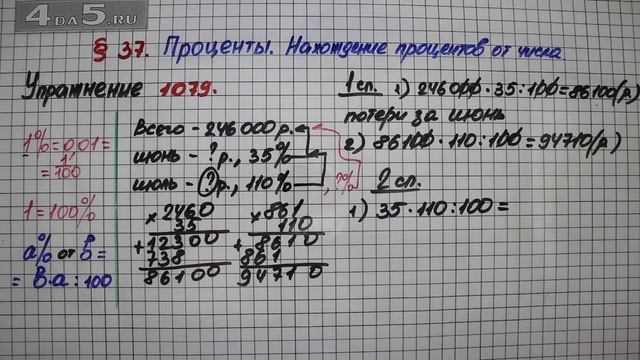 4DA5.RU
§ 37. Проценты. Нахождение процентов от числа.
Упражнение 1079.
1% = 0,01 =
= 1/100
1 = 100%
a% от в =
= в·a : 100
Всего - 246 000 р.
июнь - ? р., 35%
июль - ? р., 110%
, ?%
× 2460
35
+ 12300
738
86100
× 861
110
+ 8610
861
94710
1 сп. 1) 246000·35:100=86100(р)
потери за июнь
2) 86100·110:100=94710(р)
2 сп.
1) 35·110:100=